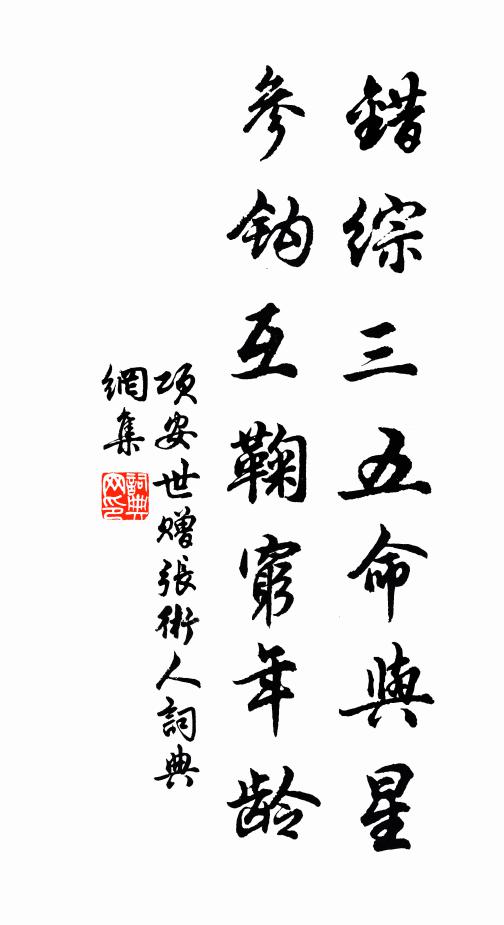 錯綜三五命與星
參鈎互鞠窮年龄
項安世赠張術人詞典
網集
詞典
网印